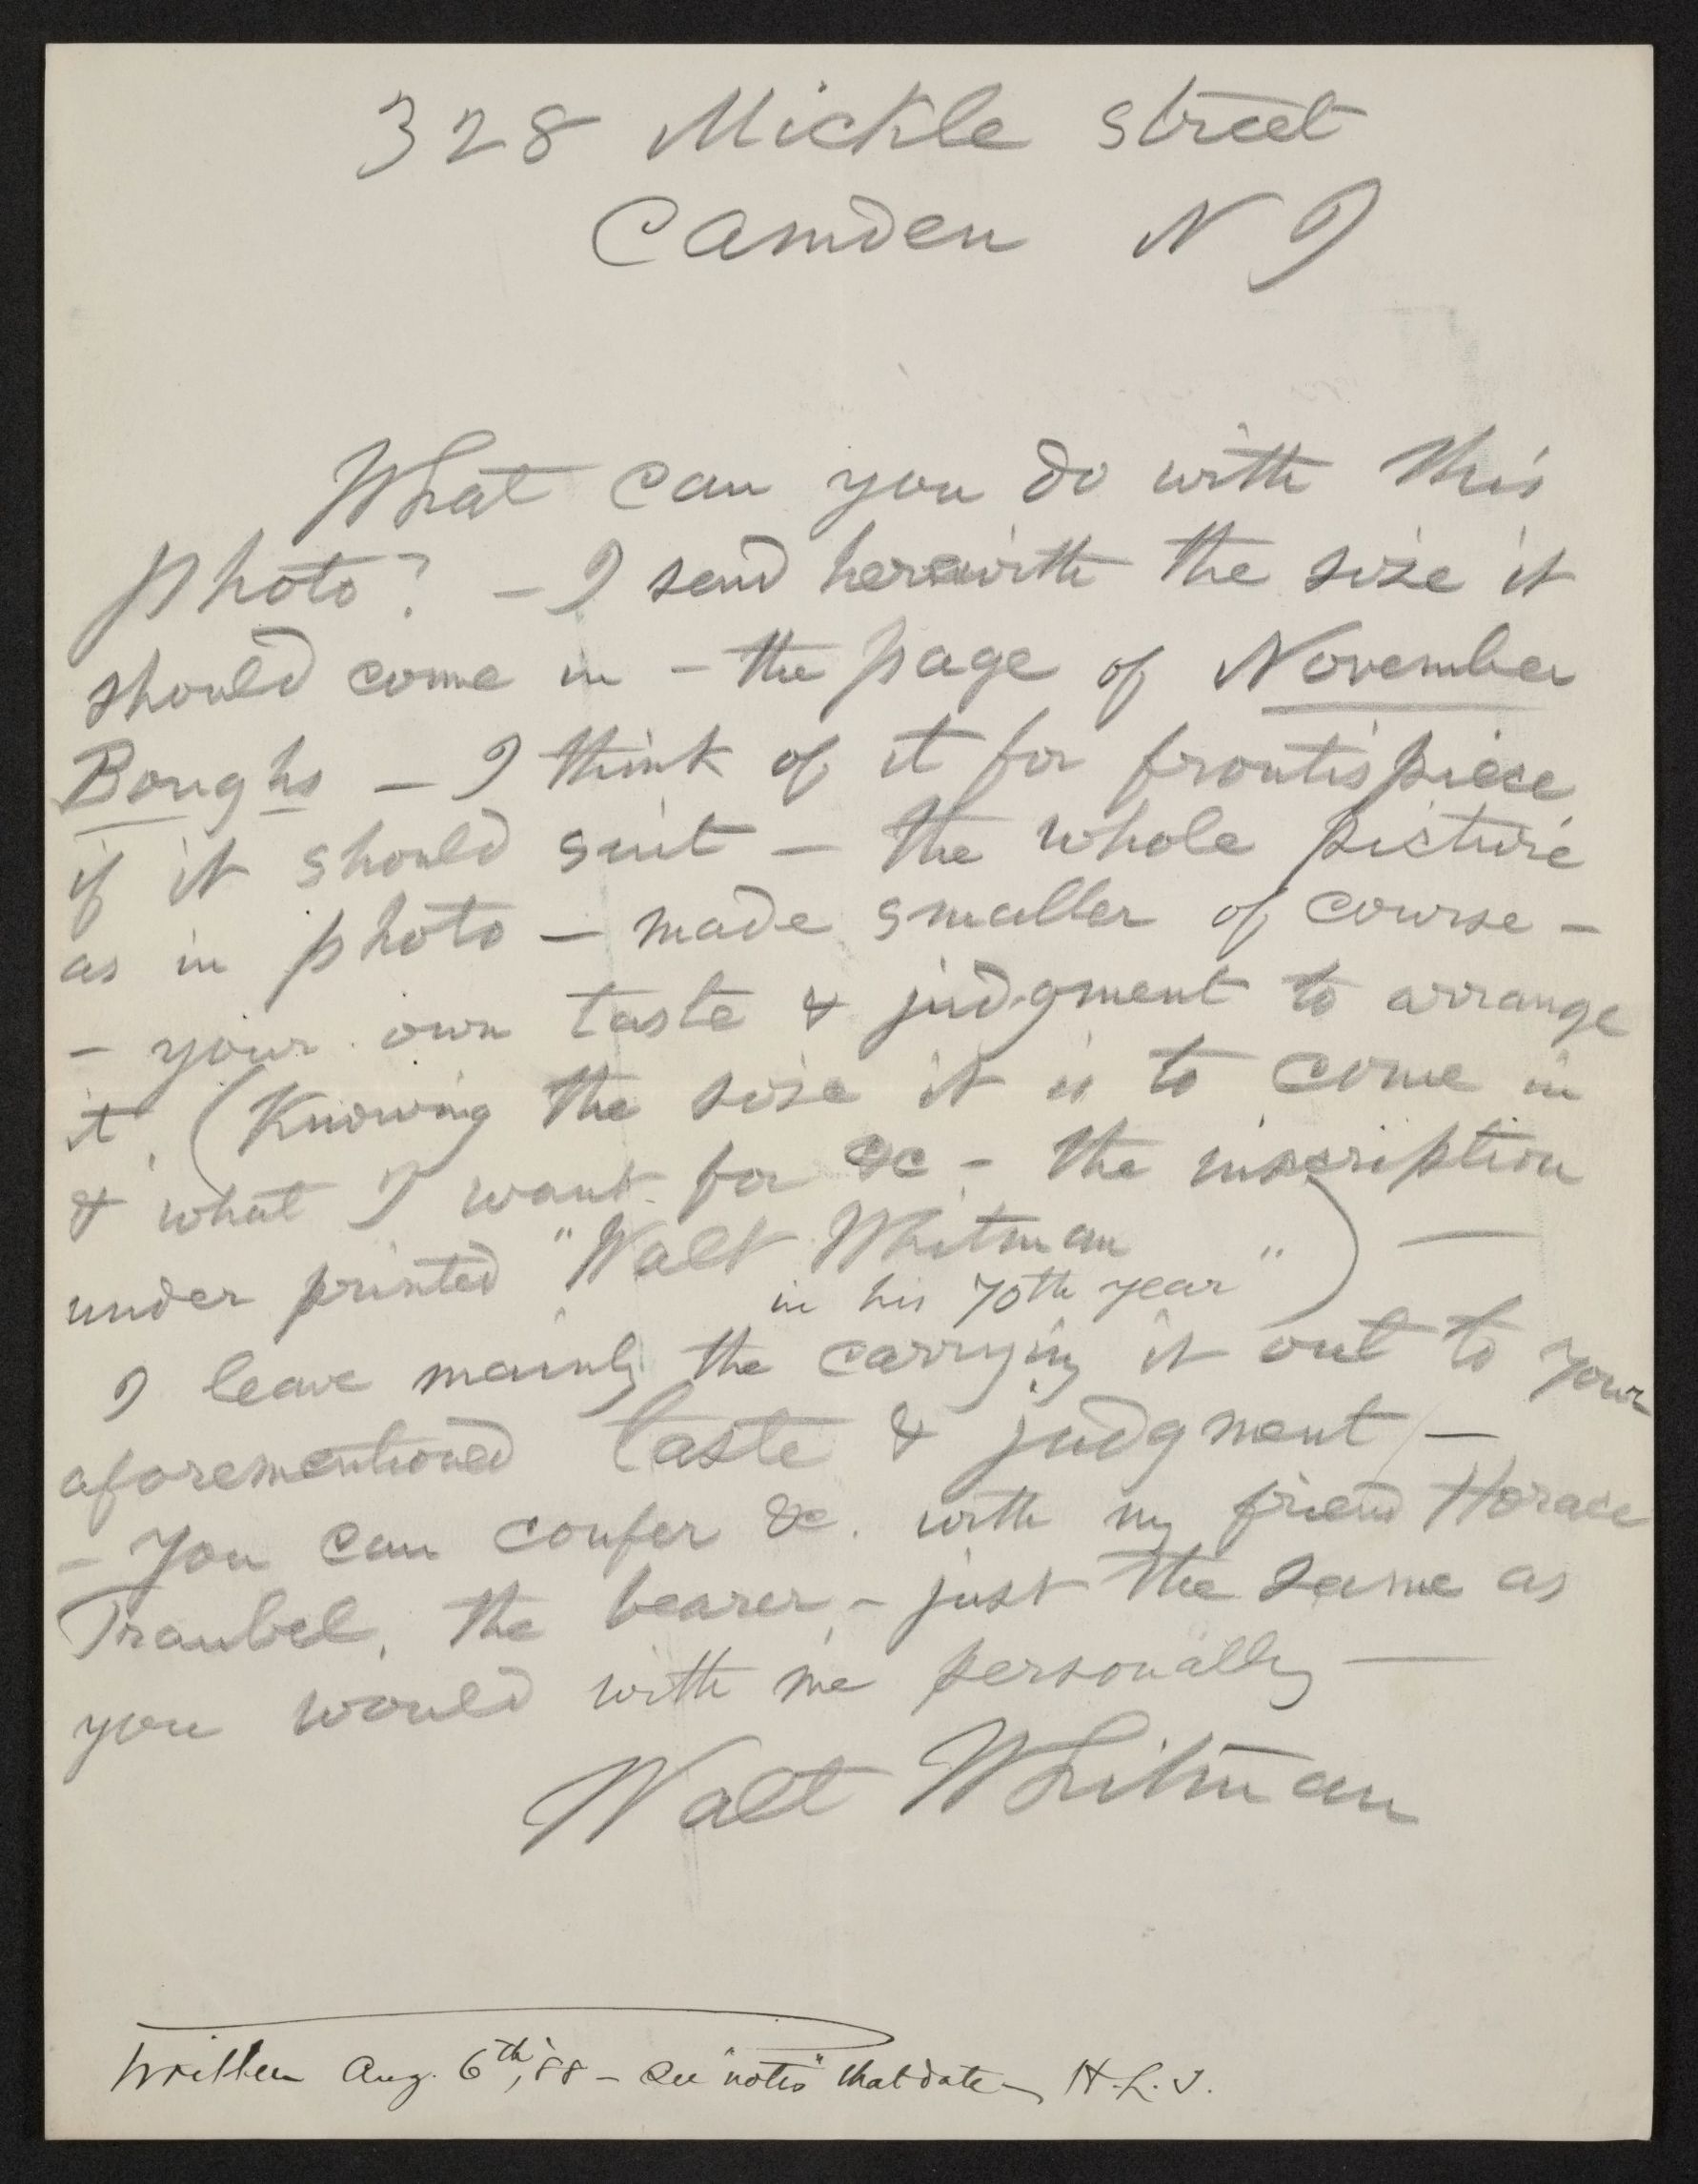 328 Mickle street
Camden N J
What can you do with this
photo? - I send herewith the size it
should come in - the page of November
Boughs - I think of it for frontispiece
if it should suit - the whole picture
as in photo - made smaller of course -
- your own taste & judgment to arrange
it. (Knowing the size it is to come in
& what I want for &c - the inscription
under printed "Walt Whitman
in his 70th year") —
I leave mainly the carrying it out to your
aforementioned taste & judgment -
- You can confer &c. with my friend Horace
Traubel, the bearer, - just the same as
you would with me personally —
Walt Whitman
Written Aug. 6th, '88 - See "notes" that date - H. L. T.